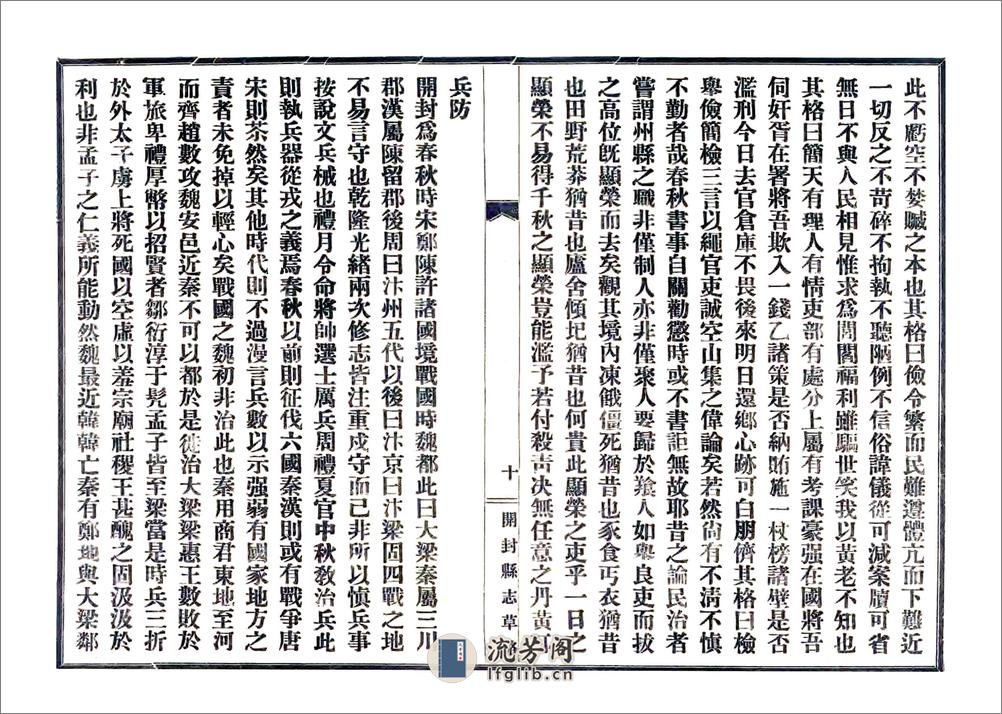 此不虧空不婪贓之本也其格曰儉令繁而民難遵體亢而下難近
一切反之不苛碎不拘執不聽陋例不信俗諱儀從可減案牘可省
無日不與人民相見惟求爲閭閻福利雖驅世笑我以黃老不知也
其格曰簡天有理人有情吏部有處分上屬有考課豪强在國將吾
伺奸胥在署將吾欺入一錢乙諸策是否納賄施一杖榜諸壁是否
濫刑今日去官倉庫不畏後來明日還鄉心跡可白朋儕其格曰檢
舉儉簡檢三言以繩官吏誠空山集之偉論矣若然尙有不淸不慎
不勤者哉春秋書事自關勸懲時或不書詎無故耶昔之論民治者
嘗謂州縣之職非僅制人亦非僅聚人要歸於養人如舉良吏而拔
之高位旣顯榮而去矣觀其境內凍餓僵死猶昔也豕食丐衣猶昔
也田野荒莽猶昔也廬舍傾圮猶昔也何貴此顯榮之吏乎一日之
顯榮不易得千秋之顯榮豈能濫予若付殺靑决無任意之丹黃可
十
開封縣志草
兵防
開封爲春秋時宋鄭陳許諸國境戰國時魏都此曰大梁秦屬三川
郡漢屬陳留郡後周曰汴州五代以後曰汴京曰汴梁固四戰之地
不易言守也乾隆光緒兩次修志皆注重戍守而已非所以慎兵事
按說文兵械也禮月令命將帥選士厲兵周禮夏官中秋敎治兵此
則執兵器從戎之義焉春秋以前則征伐六國秦漢則或有戰爭唐
宋則茶然矣其他時代則不過漫言兵數以示强弱有國家地方之
責者未免掉以輕心矣戰國之魏初非治此也秦用商君東地至河
而齊趙數攻魏安邑近秦不可以都於是徙治大梁梁惠王數敗於
軍旅卑禮厚幣以招賢者鄒衍淳于髡孟子皆至梁當是時兵三折
於外太子虜上將死國以空虛以羞宗廟社稷王甚醜之固汲汲於
利也非孟子之仁義所能動然魏最近韓韓亡秦有鄭地與大梁鄰
流芳阁
lfglib.cn